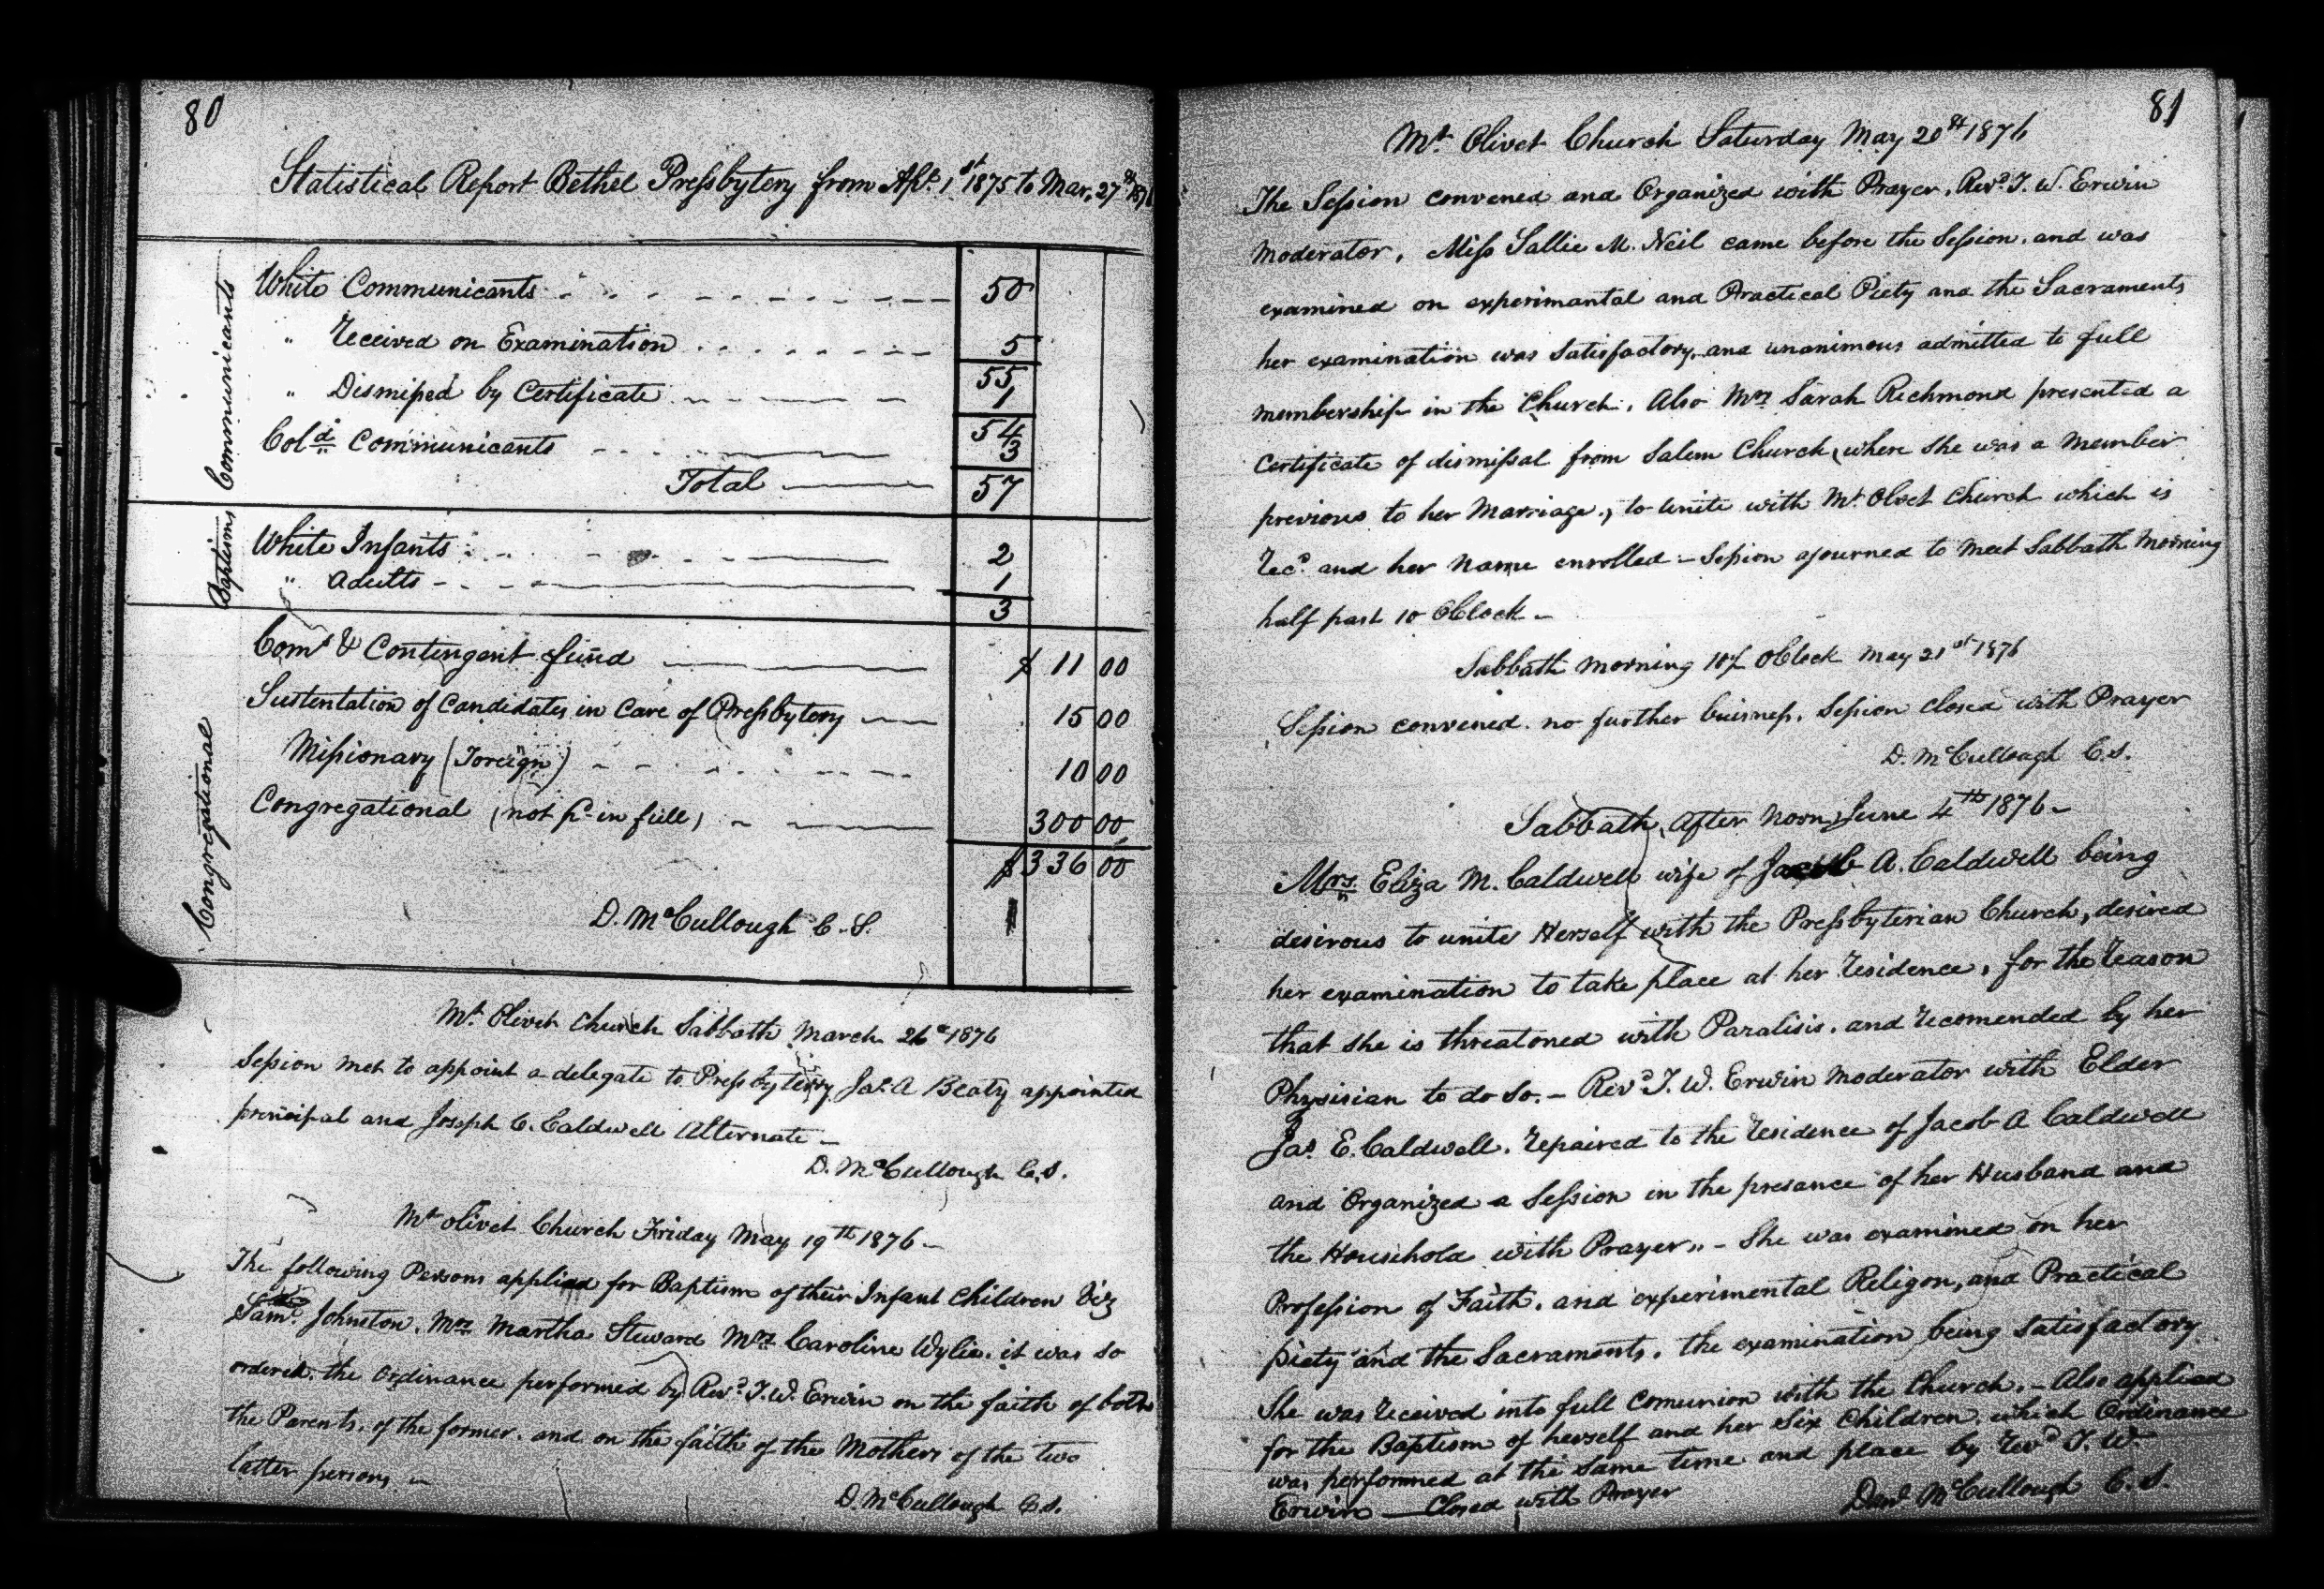 80
Statistical Report Bethel Presbytery from Apl. 1st 1875 to Mar. 27th 1876
Communicants
White Communicants 50
" Received on Examination 5
55
" Dismissed by Certificate 1
54
Cold Communicants 3
Total 57
Baptisms
White Infants 2
" Adults 1
3
Congregational
Coms & Contingent fund $ 11 00
Sustentation of Candidates in Care of Presbytery 15 00
Missionary (Foreign) 10 00
Congregational (not pd in full) 300 00
$ 336 00
D. McCullough C. S.
Mt Olivet Church Sabbath March 26th 1876
Session met to appoint a delegate to Presbytery Jas A Beaty appointed
principal and Joseph C. Caldwell Alternate –
D. McCullough C. S.
Mt Olivet Church Friday May 19th 1876 –
The following Persons applied for Baptism of their Infant Children Viz
Saml Johnston. Mrs Martha Steward Mrs Caroline Wylie. it was so
ordered. the Ordinance performed by Revd T. W. Erwin on the faith of both
the Parents. of the former. and on the faith of the Mothers of the two
latter persons –
D. McCullough C. S.
81
Mt Olivet Church Saturday May 20th 1876
The Session convened and Organized with Prayer, Revd T. W. Erwin
Moderator, Miss Sallie M. Neil came before the Session. and was
examined on experimantal and Practical Piety and the Sacraments
her examination was Satisfactory, and unanimous admitted to full
membership in the Church. Also Mrs Sarah Richmond presented a
Certificate of dismissal from Salem Church, where she was a Member
previous to her Marriage., to unite with Mt Olvet Church which is
Recd and her Name enrolled – Session ajourned to meet Sabbath Morning
half past 10 OClock –
Sabbath Morning 10½ OClock May 21st 1876
Session convened. no further buisness. Session closed with Prayer
D. McCullough C. S.
Sabbath, After Noon, June 4th 1876 –
Mrs. Eliza M. Caldwell wife of Jacob A. Caldwell being
desirous to unite Herself with the Presbyterian Church, desired
her examination to take place at her Residence, for the Reason
that she is threatoned with Paralisis. and recomended by her
Physisian to do so. – Revd T. W. Erwin Moderator with Elder
Jas. E. Caldwell. repaired to the Residence of Jacob A Caldwell
and Organized a Session in the presance of her Husband and
the Household with Prayer. – She was examined on her
Profession of Faith. and experimental Religon, and Practical
piety and the Sacraments. the examination being Satisfactory
She was Received into full Comunion with the Church. – Also applied
for the Baptism of herself and her Six Children. which Ordinance
was performed at the same time and place by Revd T. W.
Erwin — Closed with Prayer
Davd McCullough C. S.